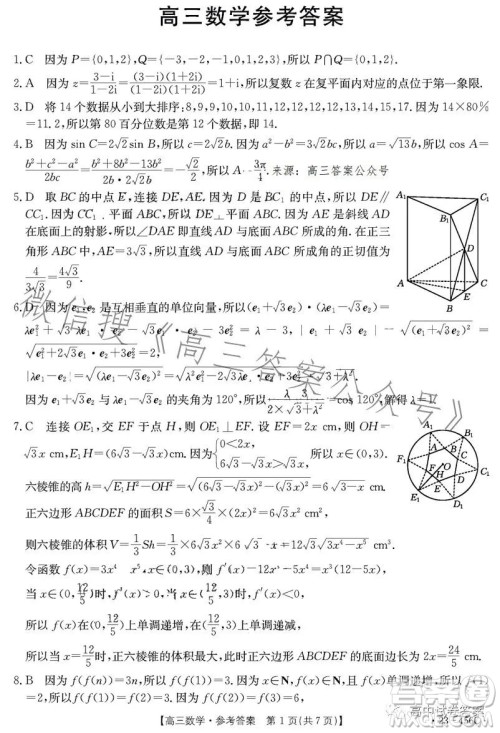 高三数学参考答案
1.C 因为P={0,1,2},Q={-3,-2,-1,0,1,2,3},所以P∩Q={0,1,2}.
2.A 因为z=(3-i)/(1-2i)=(3-i)(1+2i)/((1-2i)(1+2i))=1+i,所以复数z在复平面内对应的点位于第一象限.
3.D 将14个数据从小到大排序:8,9,9,10,10,11,12,12,13,13,14,14,15,17.因为14×80%
=11.2,所以第80百分位数是第12个数据,即14.
4.B 因为sin C=2√2sin B,所以c=2√2b.因为a²-b²=3√2bc,所以a=√13b,所以cos A=
(b²+c²-a²)/2bc=(b²+8b²-13b²)/(2b·2√2b)=-√2/2,所以A 3π/4.来源:高三答案公众号
5.D 取BC的中点E,连接DE,AE.因为D是BC₁的中点,所以DE∥
CC₁.因为CC₁ 平面ABC,所以DE⊥平面ABC.因为AE是斜线AD
在底面的射影,所以∠DAE即直线AD与底面ABC所成的角.在正三
角形ABC中,AE=3√3,所以直线AD与底面ABC所成角的正切值为
4/(3√3)=4√3/9.
6.D 因为e₁,e₂是互相垂直的单位向量,所以(e₁+√3e₂)·(λe₁-√3e₂)=
λe₁²+√3λe₁·e₂-√3e₁·e₂-3e₂²=λ-3,|e₁+√3e₂|=√(e₁+√3e₂)²=
√(e₁²+2√3e₁·e₂+3e₂²)=2,
|λe₁-√3e₂|=√(λe₁-√3e₂)²=√(λ²e₁²-2√3λe₁·e₂+3e₂²)=√(3+λ²).
因为e₁+√3e₂与λe₁-√3e₂的夹角为120°,所以(λ-3)/(2×√(3+λ²))=cos 120°,解得λ=1.
7.C 连接OE₁,交EF于点H,则OE₁⊥EF.设EF=2x cm,则OH=
√3x cm,E₁H=(6√3-√3x)cm.因为{0<2x, 6√3-√3x>√3x,所以x∈(0,3).
六棱锥的高h=√(E₁H²-OH²)=√((6√3-√3x)²-(√3x)²)=6√(3-x) cm.
正六边形ABCDEF的面积S=6×√3/4×(2x)²=6√3x² cm²,
则六棱锥的体积V=1/3Sh=1/3×6√3x²×6√(3-x)=12√3√(3x⁴-x⁵) cm³.
令函数f(x)=3x⁴-x⁵,x∈(0,3),则f′(x)=12x³-5x⁴=x³(12-5x),
当x∈(0,12/5)时,f′(x)>0,当x∈(12/5,3)时,f′(x)<0,
所以f(x)在(0,12/5)上单调递增,在(12/5,3)上单调递减,
所以当x=12/5时,正六棱锥的体积最大,此时正六边形ABCDEF的底面边长为2x=24/5 cm.
8.B 因为f(f(n))=3n,所以f(f(1))=3.因为x∈N,f(x)∈N,且f(x)在(0,+∞)上单调递增,
【高三数学·参考答案 第1页(共7页)】
A₁
C₁
B₁
D
A
C
E
B
A₁
B₁
F₁
C₁
E₁
D₁
A
B
C
D
E
F
H
O
微信搜《高三答案公众号》
答案圈
高中试卷答案